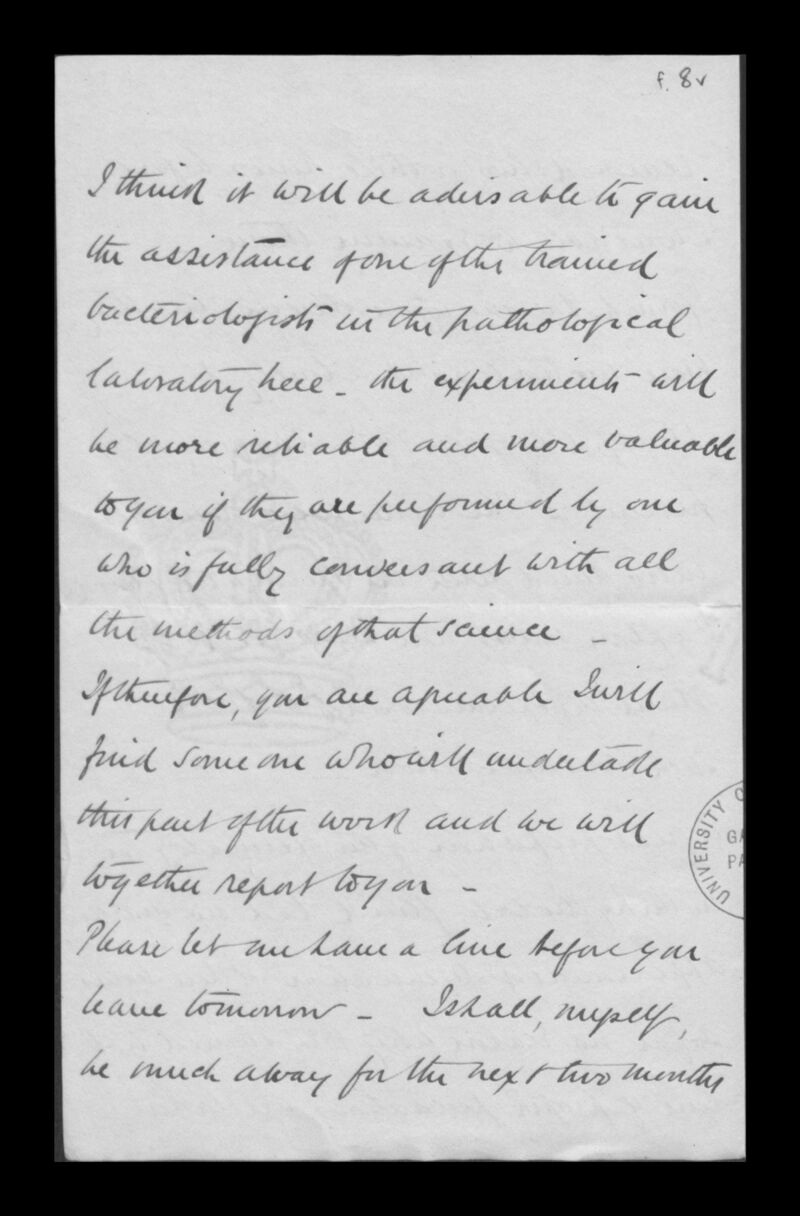 f. 8v
I think it will be advisable to gain
the assistance of one of the trained
bacteriologists in the pathological
laboratory here - the experiments will
be more reliable and more valuable
to you if they are performed by one
who is fully conversant with all
the methods of that science -
If therefore, you are agreeable I will
find some one who will undertake
this part of the work and we will
together report to you -
Please let me have a line before you
leave tomorrow - I shall, myself,
be much away for the next two months
UNIVERSITY